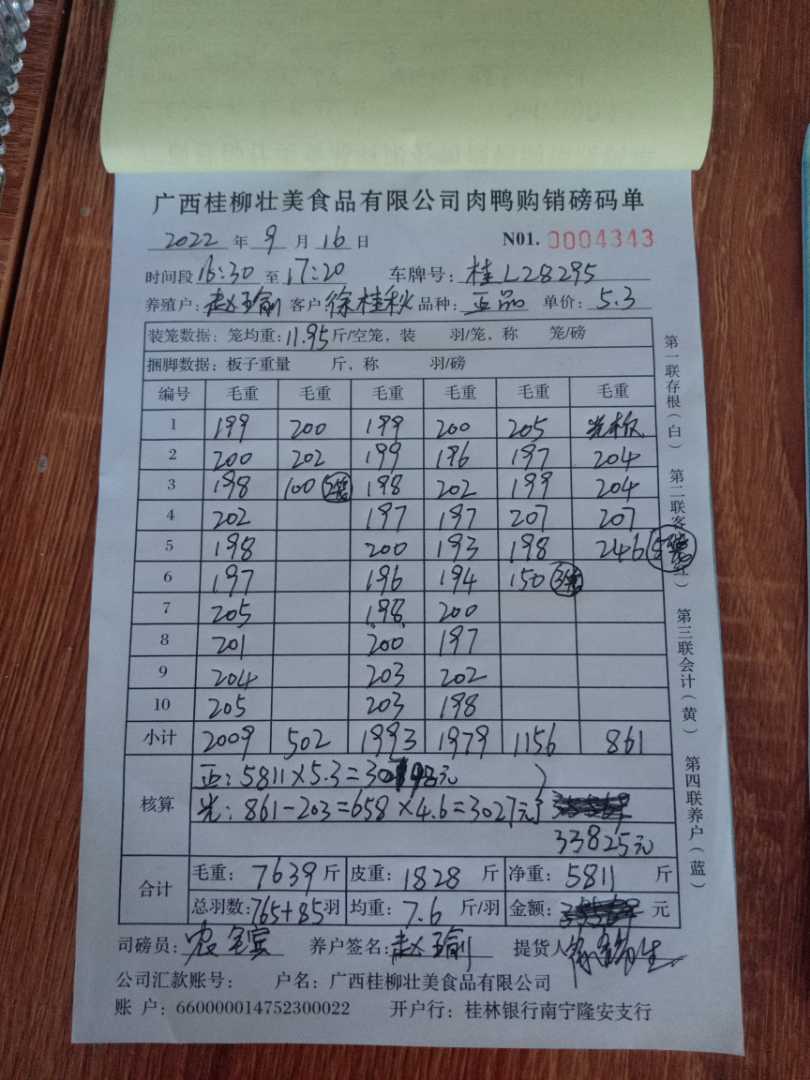 广西桂柳壮美食品有限公司肉鸭购销磅码单
2022 年 9 月 16 日 N01. 0004343
时间段 16:30 至 17:20 车牌号: 桂L28295
养殖户: 赵瑜 客户 徐桂秋 品种: 正品 单价: 5.3
装笼数据: 笼均重: 11.95 斤/空笼, 装 羽/笼, 称 笼/磅
捆脚数据: 板子重量 斤, 称 羽/磅
编号 毛重 毛重 毛重 毛重 毛重 毛重
1 199 200 199 200 205
2 200 202 199 196 197 204
3 198 100 198 202 199 204
4 202 197 197 207 207
5 198 200 193 198 246
6 197 196 194 150
7 205 198 200
8 201 200 197
9 204 203 202
10 205 203 198
小计 2009 502 1993 1979 1156 861
核算
正: 5811×5.3=30 元
光: 861-203=658×4.6=3027元
33825元
合计
毛重: 7639 斤 皮重: 1828 斤 净重: 5811 斤
总羽数: 765+85 羽 均重: 7.6 斤/羽 金额: 元
司磅员: 养户签名: 赵瑜 提货人
公司汇款账号: 户名: 广西桂柳壮美食品有限公司
账 户: 660000014752300022 开户行: 桂林银行南宁隆安支行
第一联存根(白)
第二联客
第三联会计(黄)
第四联养户(蓝)